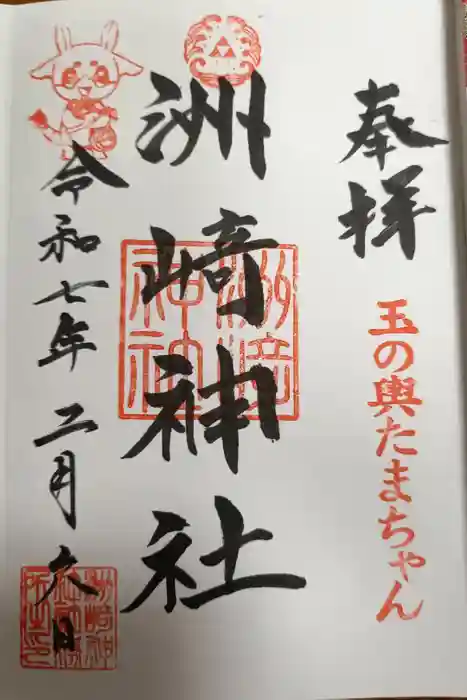 奉拝
玉の輿たまちゃん
洲崎神社
洲崎
神社
令和七年二月六日